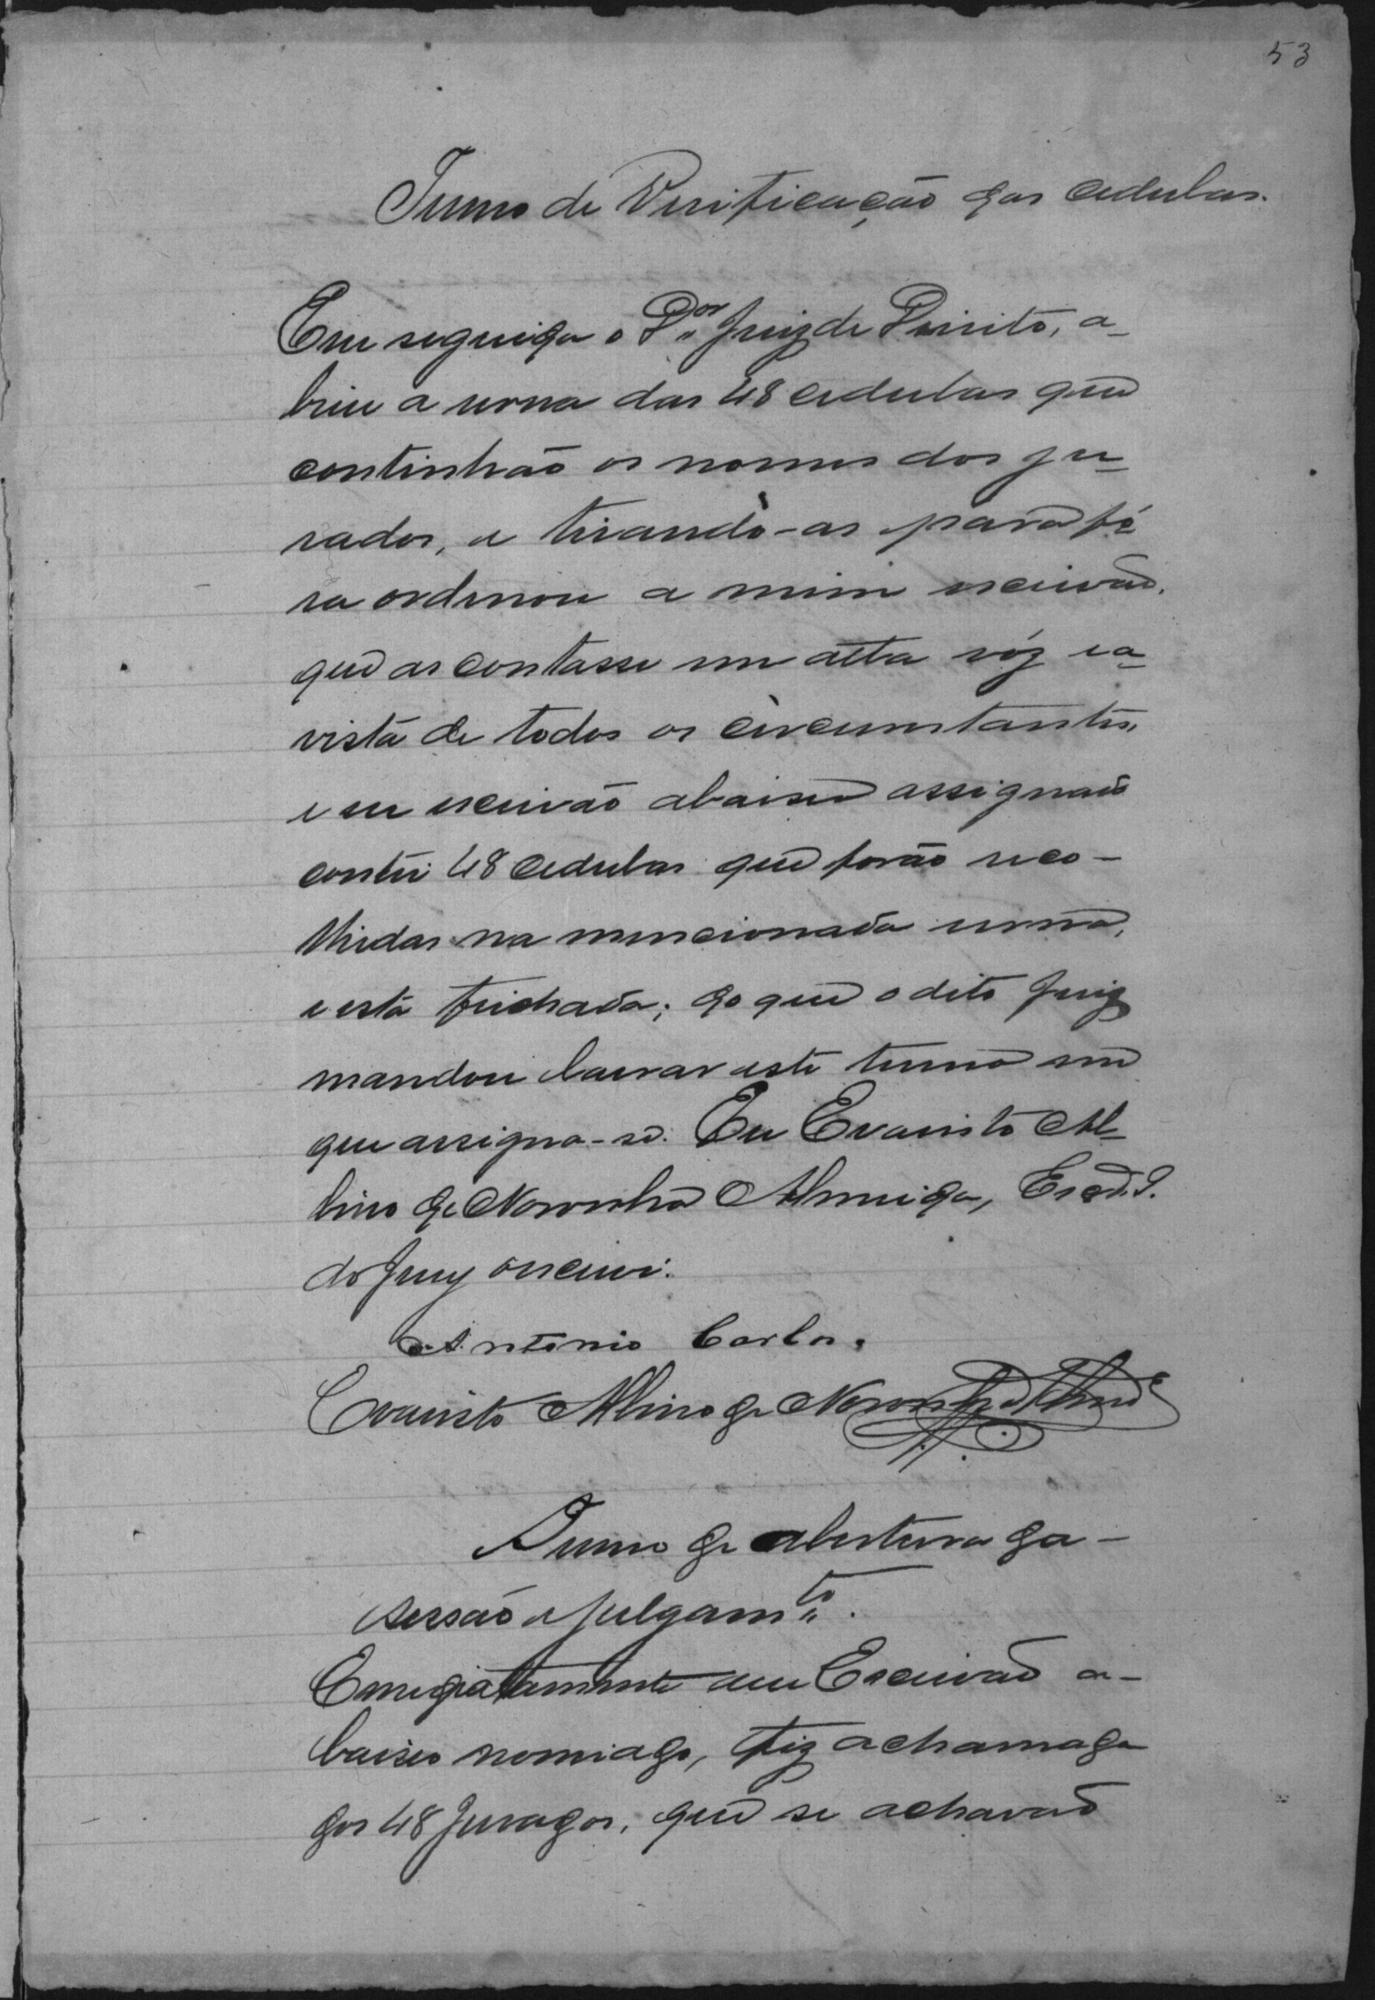 53
Termo de Verificação das cedulas.
Em seguida o D.or Juiz de Direito, a-
briu a urna das 48 cedulas que
continhão os nomes dos ju-
rados, e tirando-as para fó
ra ordenou a mim escrivão,
que as contasse em alta vóz e a-
vista de todos os circumstantes,
e eu escrivão abaixo assignado
contei 48 cedulas que forão reco-
lhidas na mencionada urna,
e esta feichada; do que o dito Juiz
mandou lavrar este termo em
que assigna-se. Eu Evaristo Al-
bino de Noronha Almeida, Escr.
do Jury escrevi.
Antonio Carlos.
Evaristo Albino de Noronha Almd.
Termo de abertura da-
sessão e julgam.to
Emediatamente eu Escrivão a-
baixo nomiado, fiz a chamada
dos 48 Jurados, que se achavão